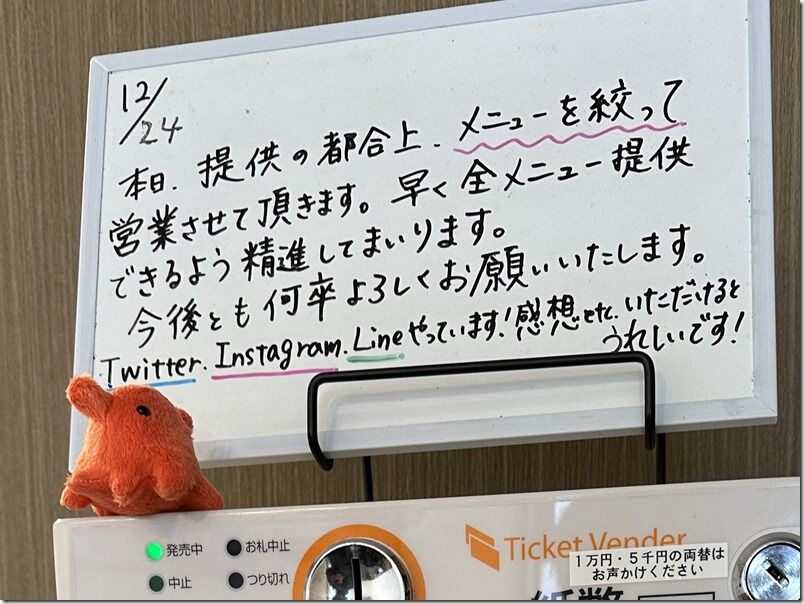 12/24
本日、提供の都合上、メニューを絞って
営業させて頂きます。早く全メニュー提供
できるよう精進してまいります。
今後とも何卒よろしくお願いいたします。
Twitter、Instagram、Lineやっています!感想etc、いただけると
うれしいです!
発売中
お札中止
中止
つり切れ
Ticket Vender
1万円・5千円の両替は
お声かけください